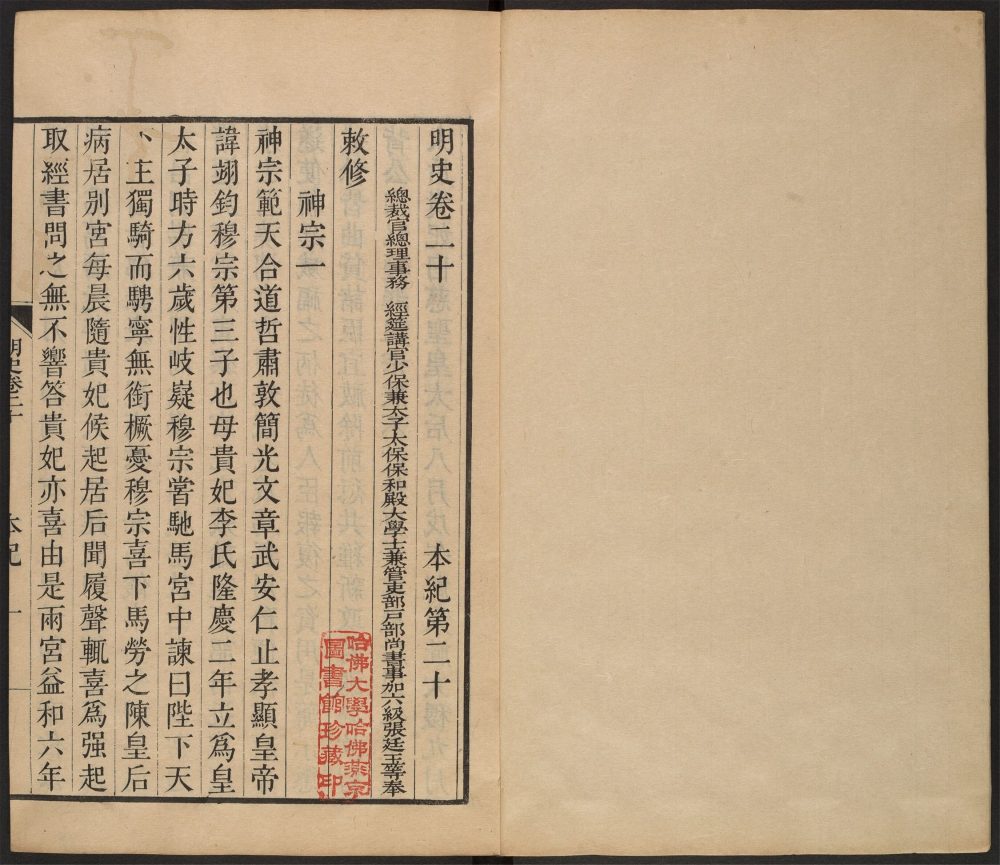 明史卷二十 本紀第二十
總裁官總理事務 經筵講官少保兼太子太保保和殿大學士兼管吏部戶部尚書事加六級張廷玉等奉
敕修
神宗一
神宗範天合道哲肅敦簡光文章武安仁止孝顯皇帝
諱翊鈞穆宗第三子也母貴妃李氏隆慶二年立爲皇
太子時方六歲性岐嶷穆宗嘗馳馬宮中諫曰陛下天
下主獨騎而騁寧無銜橛憂穆宗喜下馬勞之陳皇后
病居別宮每晨隨貴妃候起居后聞履聲輒喜爲强起
取經書問之無不響答貴妃亦喜由是兩宮益和六年
明史卷二十 本紀 一
哈佛大學哈佛燕京
圖書館珍藏印